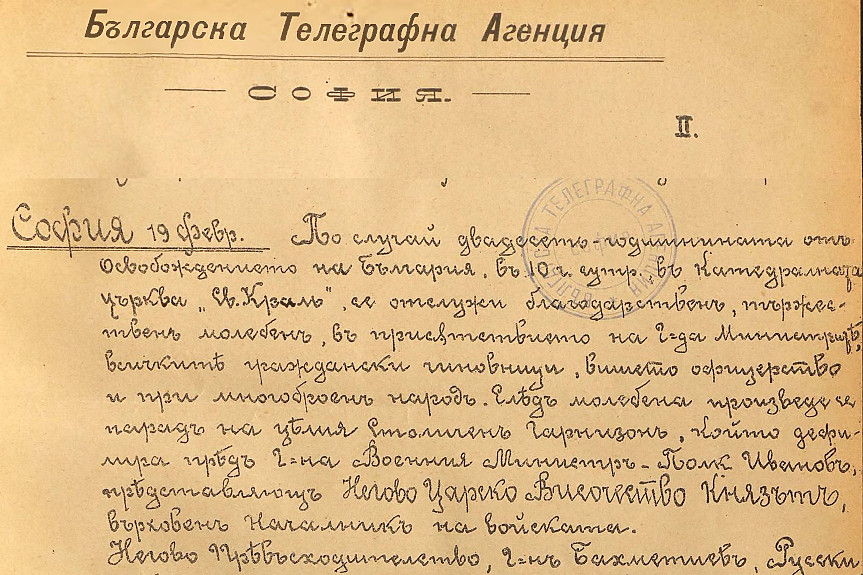 Българска Телеграфна Агенция
СОФИЯ.
II.
ТЕЛЕГРАФНА
София 19 февр. По случай двадесетъ-годишнината отъ
Освобождението на България, въ 10 ч. сутр., въ Катедралната
църква „Св. Краль", се отслужи благодарственъ, тържес-
твенъ молебенъ, въ присѫтствието на Г-да Министрите,
всичкитѣ граждански чиновници, висшето офицерство
и при многоброенъ народъ. Слѣдъ молебена произведе се
парадъ на цѣлия Столиченъ Гарнизонъ, който дефи-
лира прѣдъ Г-на Военния Министръ - Полк Ивановъ,
прѣдставляющъ Негово Царско Височество Князътъ,
върховенъ Началникъ на войската.
Негово Прѣвъсходителство, Г-нъ Бахметиевъ, Руски